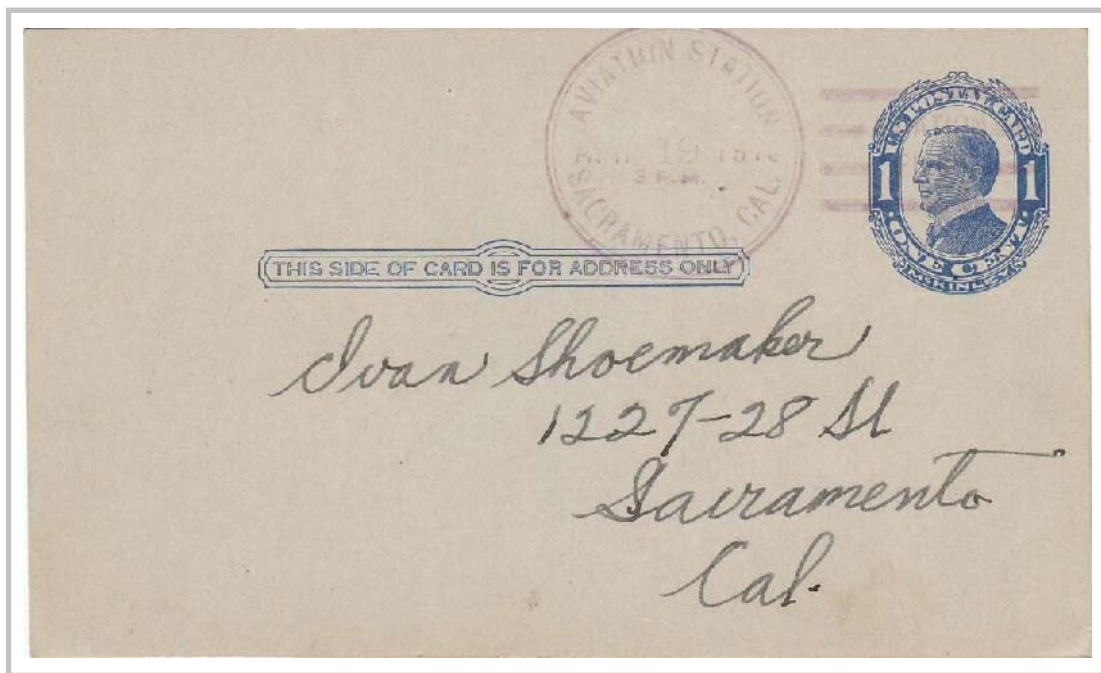 AVIATION STATION
APR 19 1912
3 P.M.
SACRAMENTO, CAL.
U.S. POSTAL CARD
1 1
ONE CENT
McKINLEY
THIS SIDE OF CARD IS FOR ADDRESS ONLY
Ivan Shoemaker
1227-28 St
Sacramento
Cal.